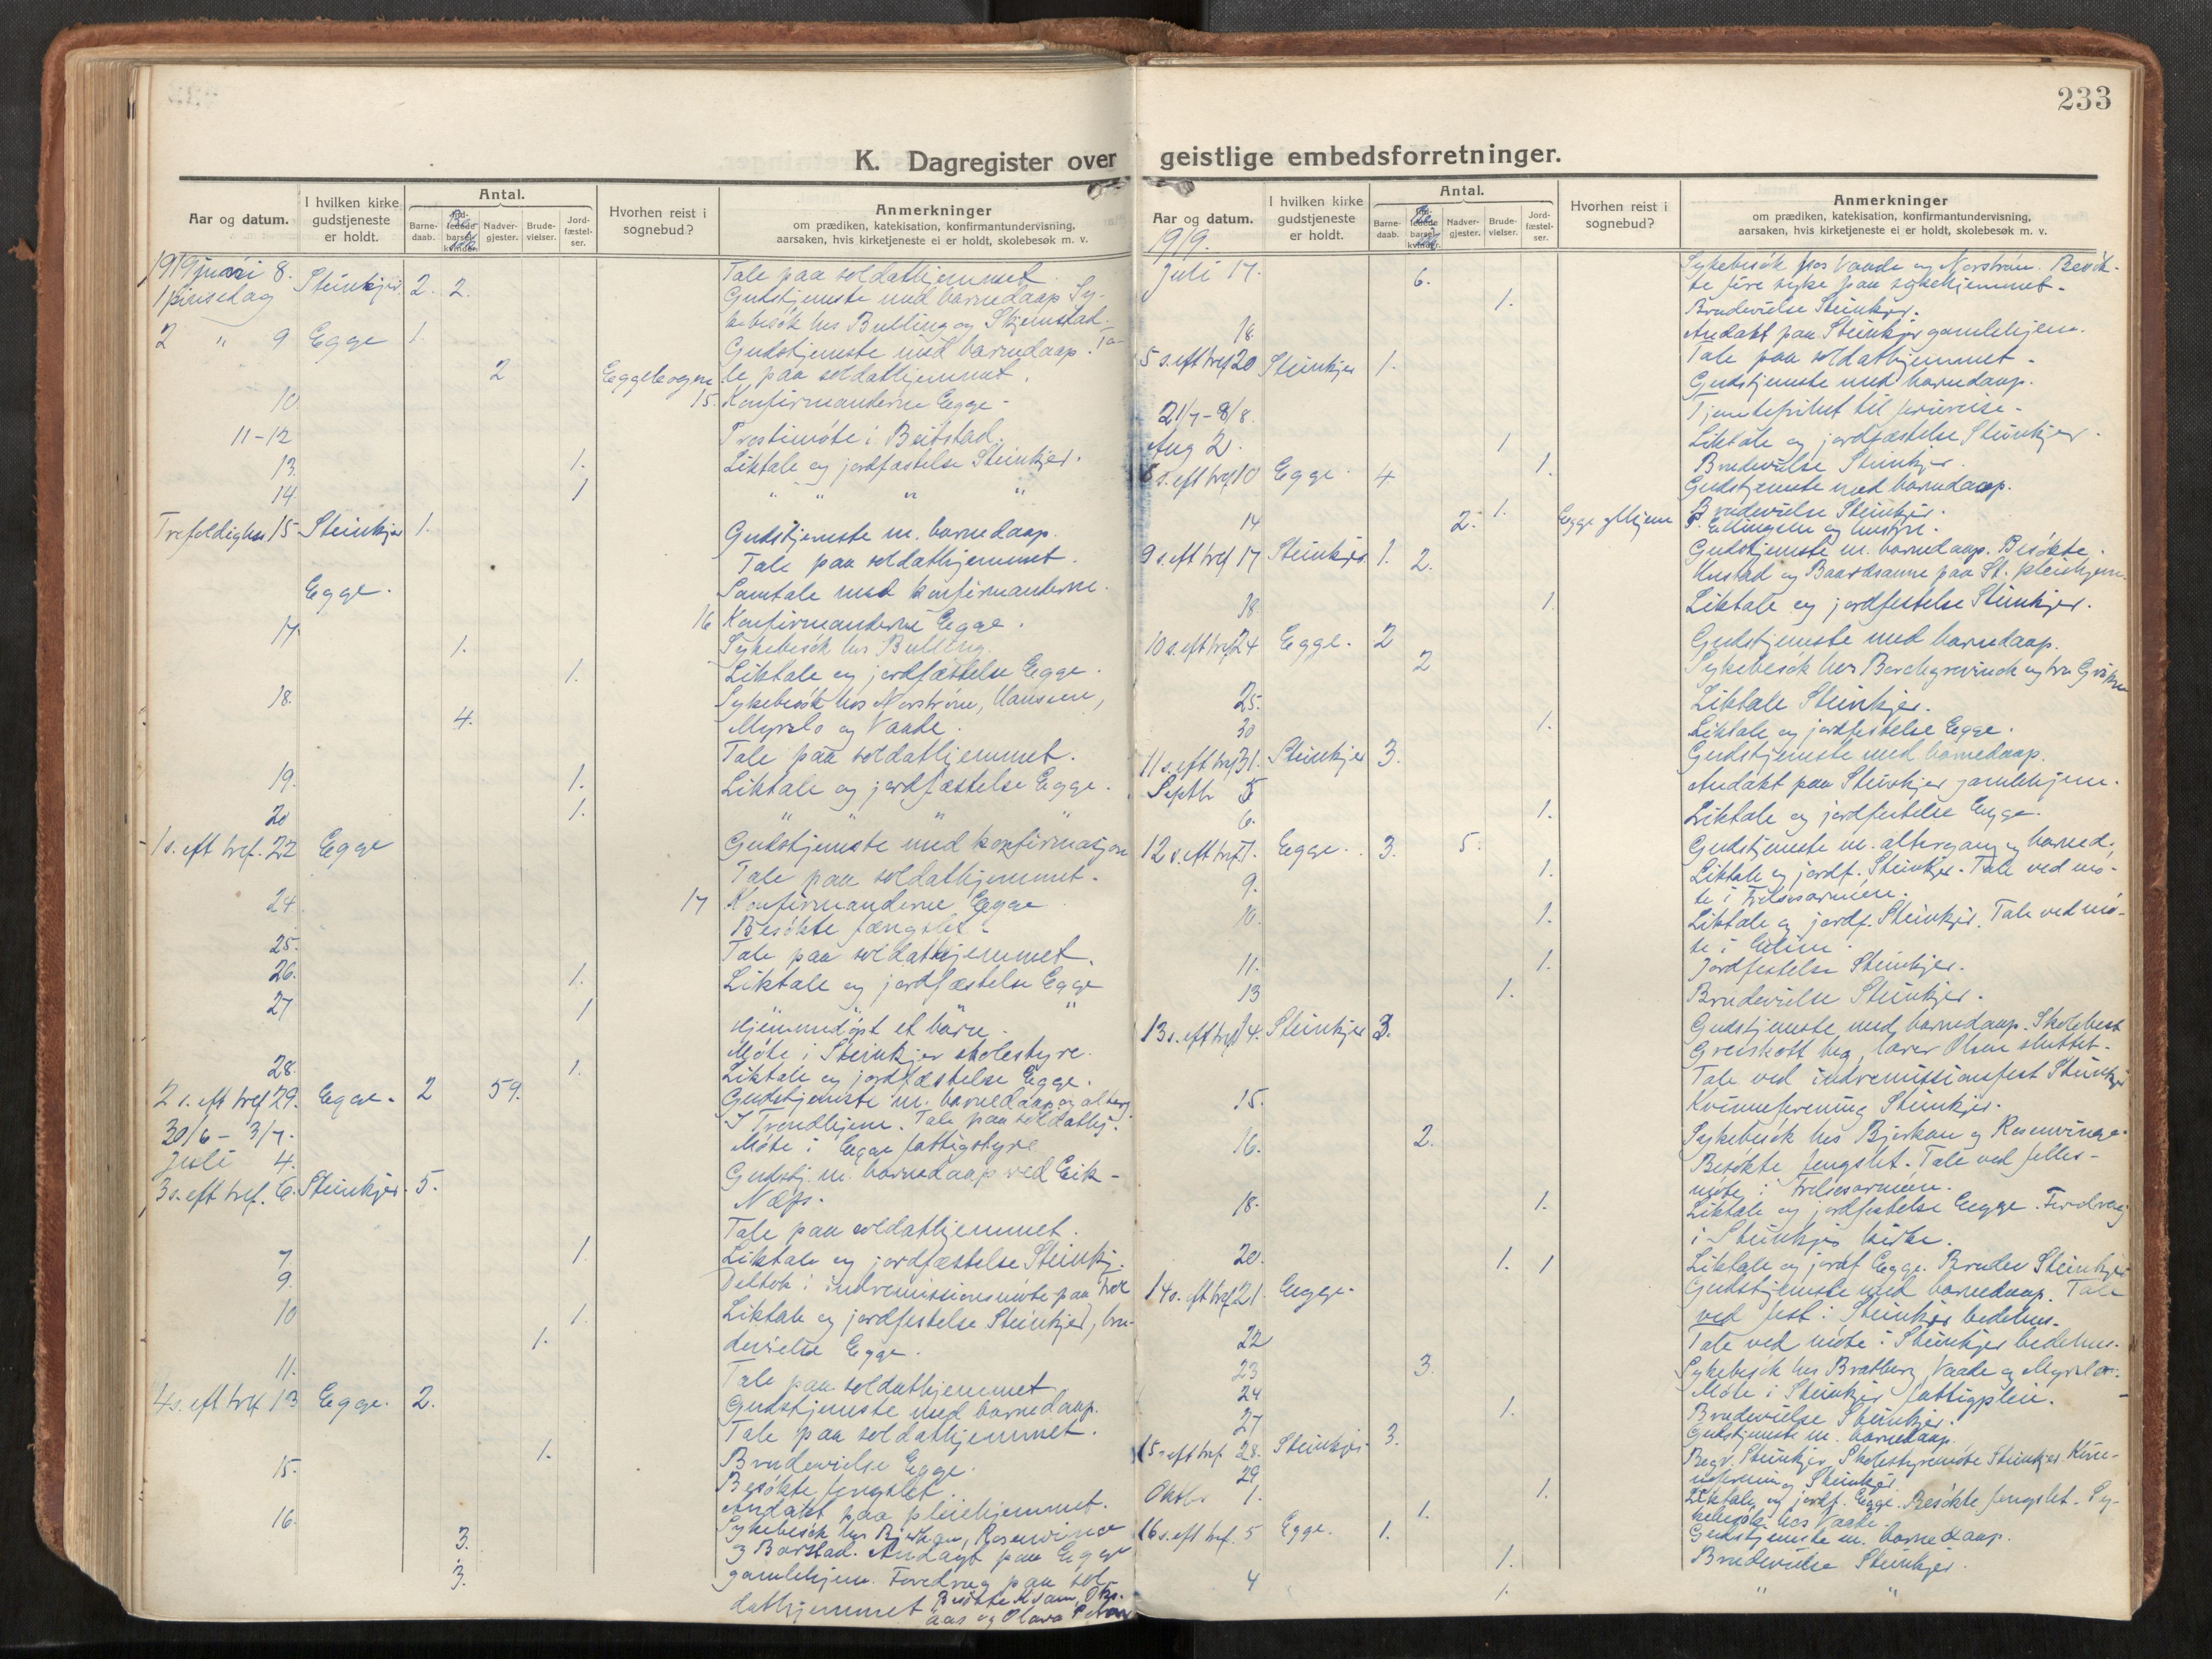 233
K. Dagregister over geistlige embedsforretninger.
Aar og datum.
I hvilken kirke gudstjeneste er holdt.
Antal.
Barne-daab.
Nadver-gjester.
Brude-vielser.
Jord-fæstel-ser.
Hvorhen reist i sognebud?
Anmerkninger
om prædiken, katekisation, konfirmantundervisning,
aarsaken, hvis kirketjeneste ei er holdt, skolebesøk m. v.
1919 juni 8. Tale paa soldathjemmet.
1 pinsedag Steinkjer 2. 2. Gudstjeneste med barnedaap. Sy-
kebesök hos Bulling og Skjemstad.
2 " 9 Egge 1. Gudstjeneste med barnedaap. Ta-
2 le paa soldathjemmet.
10 15. Konfirmanderne Egge.
11-12 Prostimöte i Beitstad.
13. 1. Liktale og jordfæstelse Steinkjer.
14 1 " " " "
Trefoldighets 15 Steinkjer 1. Gudstjeneste m. barnedaap.
Tale paa soldathjemmet.
Egge. Samtale med konfirmanderne.
16 Konfirmanderne Egge.
17. 1. Sykebesök hos Bulling.
1. Liktale og jordfæstelse Egge.
18. Sykebesök hos Norström, Hansen,
4. Myrslo og Vaade.
Tale paa soldathjemmet.
19. 1. Liktale og jordfæstelse Egge.
20 1. " " " "
1 s. eft tref. 22 Egge Gudstjeneste med konfirmasjon
Tale paa soldathjemmet.
24 17 Konfirmanderne Egge
Besökte fængslet.
25. Tale paa soldathjemmet.
26. 1. Liktale og jordfæstelse Egge
27 1 " " "
Hjemmedöpt et barn.
Möte i Steinkjer skolestyre.
28. 1. Liktale og jordfæstelse Egge.
2 s. eft tref 29. Egge. 2 59. Gudstjeneste m. barnedaap og alterg.
30/6 - 3/7. I Trondhjem. Tale paa soldathj.
Juli 4. Möte i Egge fattigstyre
3 s. eft tref. 6. Steinkjer. 5. Gudstj. m. barnedaap ved Eik-
Næss.
Tale paa soldathjemmet.
7 1. Liktale og jordfæstelse Steinkj.
9. Deltok i indremissionsmöte paa
10 1. Liktale og jordfestelse Steinkjer, bru-
1. devielse Egge.
11. Tale paa soldathjemmet
4 s. eft tref 13 Egge. 2. Gudstjeneste med barnedaap.
Tale paa soldathjemmet.
1. Brudevielse Egge.
15. Besökte fengslet.
Andakt paa pleiehjemmet.
16. Sykebesök hos Bjerkan, Rosenvinge
3. og Borstad. Andagt paa Egge
3. gamlehjem. Foredrag paa sol-
dathjemmet. Besökte
Aar og datum.
I hvilken kirke gudstjeneste er holdt.
Antal.
Barne-daab.
Nadver-gjester.
Brude-vielser.
Jord-fæstel-ser.
Hvorhen reist i sognebud?
Anmerkninger
om prædiken, katekisation, konfirmantundervisning,
aarsaken, hvis kirketjeneste ei er holdt, skolebesøk m. v.
1919.
Juli 17. 6. Sykebesök hos Vaade og Norström. Besök-
te fire syke paa sykehjemmet.
1. Brudevielse Steinkjer.
18. Andakt paa Steinkjer gamlehjem.
Tale paa soldathjemmet.
5 s. eft tref 20 Steinkjer 1. Gudstjeneste med barnedaap.
21/7 - 8/8. Tjenestefrihet til feriereise.
Liktale og jordfæstelse Steinkjer.
Aug 2. 1 Brudevielse Steinkjer.
1.
8 s. eft tref 10 Egge 4 Gudstjeneste med barnedaap.
1. Brudevielse Steinkjer.
14 2. Egge glhjem P. Ellingsen og hustru.
9 s. eft tref 17 Steinkjer 1. 2. Gudstjeneste m. barnedaap. Besökte
og Baardsanne paa St. pleiehjem.
18 1. Liktale og jordfestelse Steinkjer.
10 s. eft tref 24 Egge. 2 Gudstjeneste med barnedaap.
2 Sykebesök hos Borchgrevinck og fru
25. Liktale Steinkjer.
30 1. Liktale og jordfestelse Egge.
11 s. eft tref 31. Steinkjer 3. Gudstjeneste med barnedaap.
Septbr 5 Andakt paa Steinkjer gamlehjem.
6. 1. Liktale og jordfestelse Egge.
12 s. eft tref 7. Egge. 3. 5. Gudstjeneste m. altergang og barned.
9. 1. Liktale og jordf. Steinkjer. Tale ved mö-
te i Frelsesarmeen.
10. 1. Liktale og jordf. Steinkjer. Tale ved mö-
te i
11. 1. Jordfestelse Steinkjer.
13 1. Brudevielse Steinkjer.
13 s. eft tref 14. Steinkjer 3. Gudstjeneste med barnedaap. Skolebest
lærer Olsen sluttet.
Tale ved indremissionsfest Steinkjer
15. Kvinneforening Steinkjer.
16. 2. Sykebesök hos Bjerkan og Rosenvinge.
Besökte fengslet. Tale ved felles-
möte i Frelsesarmeen.
18. 1. Liktale og jordfestelse Egge. Foredrag
i Steinkjer kirke.
20. 1. 1 Liktale og jordf Egge. Brudev Steinkjer
14 s. eft tref 21. Egge. Gudstjeneste med barnedaap. Tale
ved fest i Steinkjer bedehus.
22 Tale ved möte i Steinkjer bedehus.
23 3. Sykebesök hos Bratberg, Vaade og Myrslo.
24 Möte i Steinkjer fattigpleie.
27 1. Brudevielse Steinkjer.
15 s. eft tref 28. Steinkjer 3. Gudstjeneste m. barnedaap.
29 Begr. Steinkjer. Skolestyremöte Steinkjer. Kvin-
neforening Steinkjer.
Oktbr 1. 1. Liktale og jordf. Egge. Besökte fengslet. Sy-
1. kebesök hos Vaade.
16 s. eft tref. 5 Egge. 1. Gudstjeneste m. barnedaap.
1. Brudevielse Steinkjer.
4 1. " "